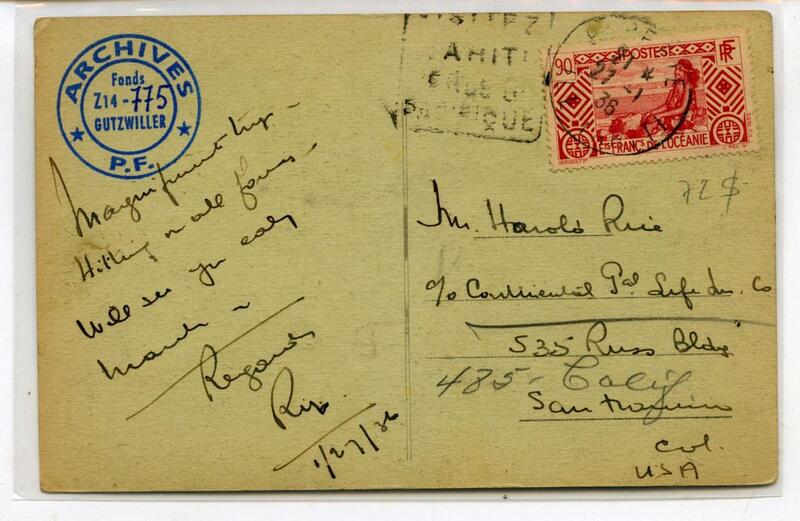 ARCHIVES
Fonds
Z14-775
GUTZWILLER
P.F.
VISITEZ
TAHITI
90
POSTES
RF
27
36
ETS FRANCS DE L'OCÉANIE
72$
Magnificent trip -
Hitting on all fours -
Will see you early
March -
Regards
1/27/36
Mr. Harold Rice
c/o Continental Life Ins. Co
535 Russ Bldg
485 - Calif
San Francisco
Cal.
USA